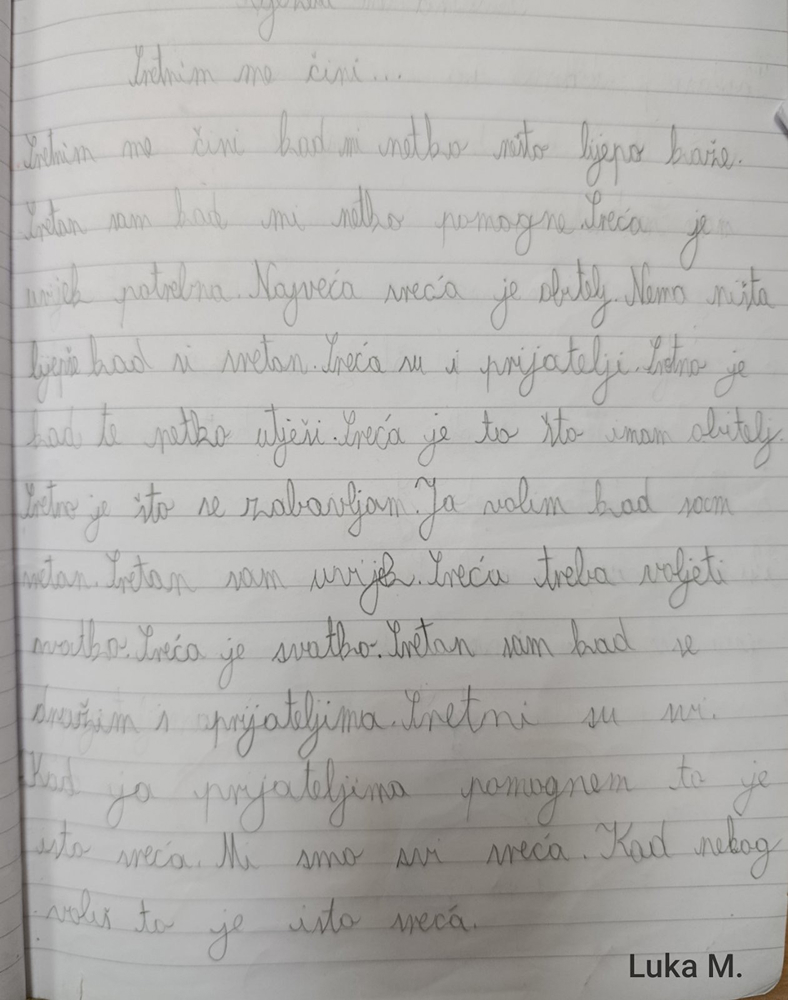 Sretnim me čini...
Sretnim me čini kad mi netko nešto lijepo kaže.
Sretan sam kad mi netko pomogne. Sreća je
uvijek potrebna. Najveća sreća je obitelj. Nema ništa
ljepše kad si sretan. Sreća su i prijatelji. Sretno je
kad te netko utješi. Sreća je to što imam obitelj.
Sretno je što se zabavljam. Ja volim kad sam
sretan. Sretan sam uvijek. Sreću treba voljeti
svatko. Sreća je svatko. Sretan sam kad se
družim s prijateljima. Sretni su svi.
Kad ja prijateljima pomognem to je
isto sreća. Mi smo svi sreća. Kad nekog
voliš to je isto sreća.
Luka M.